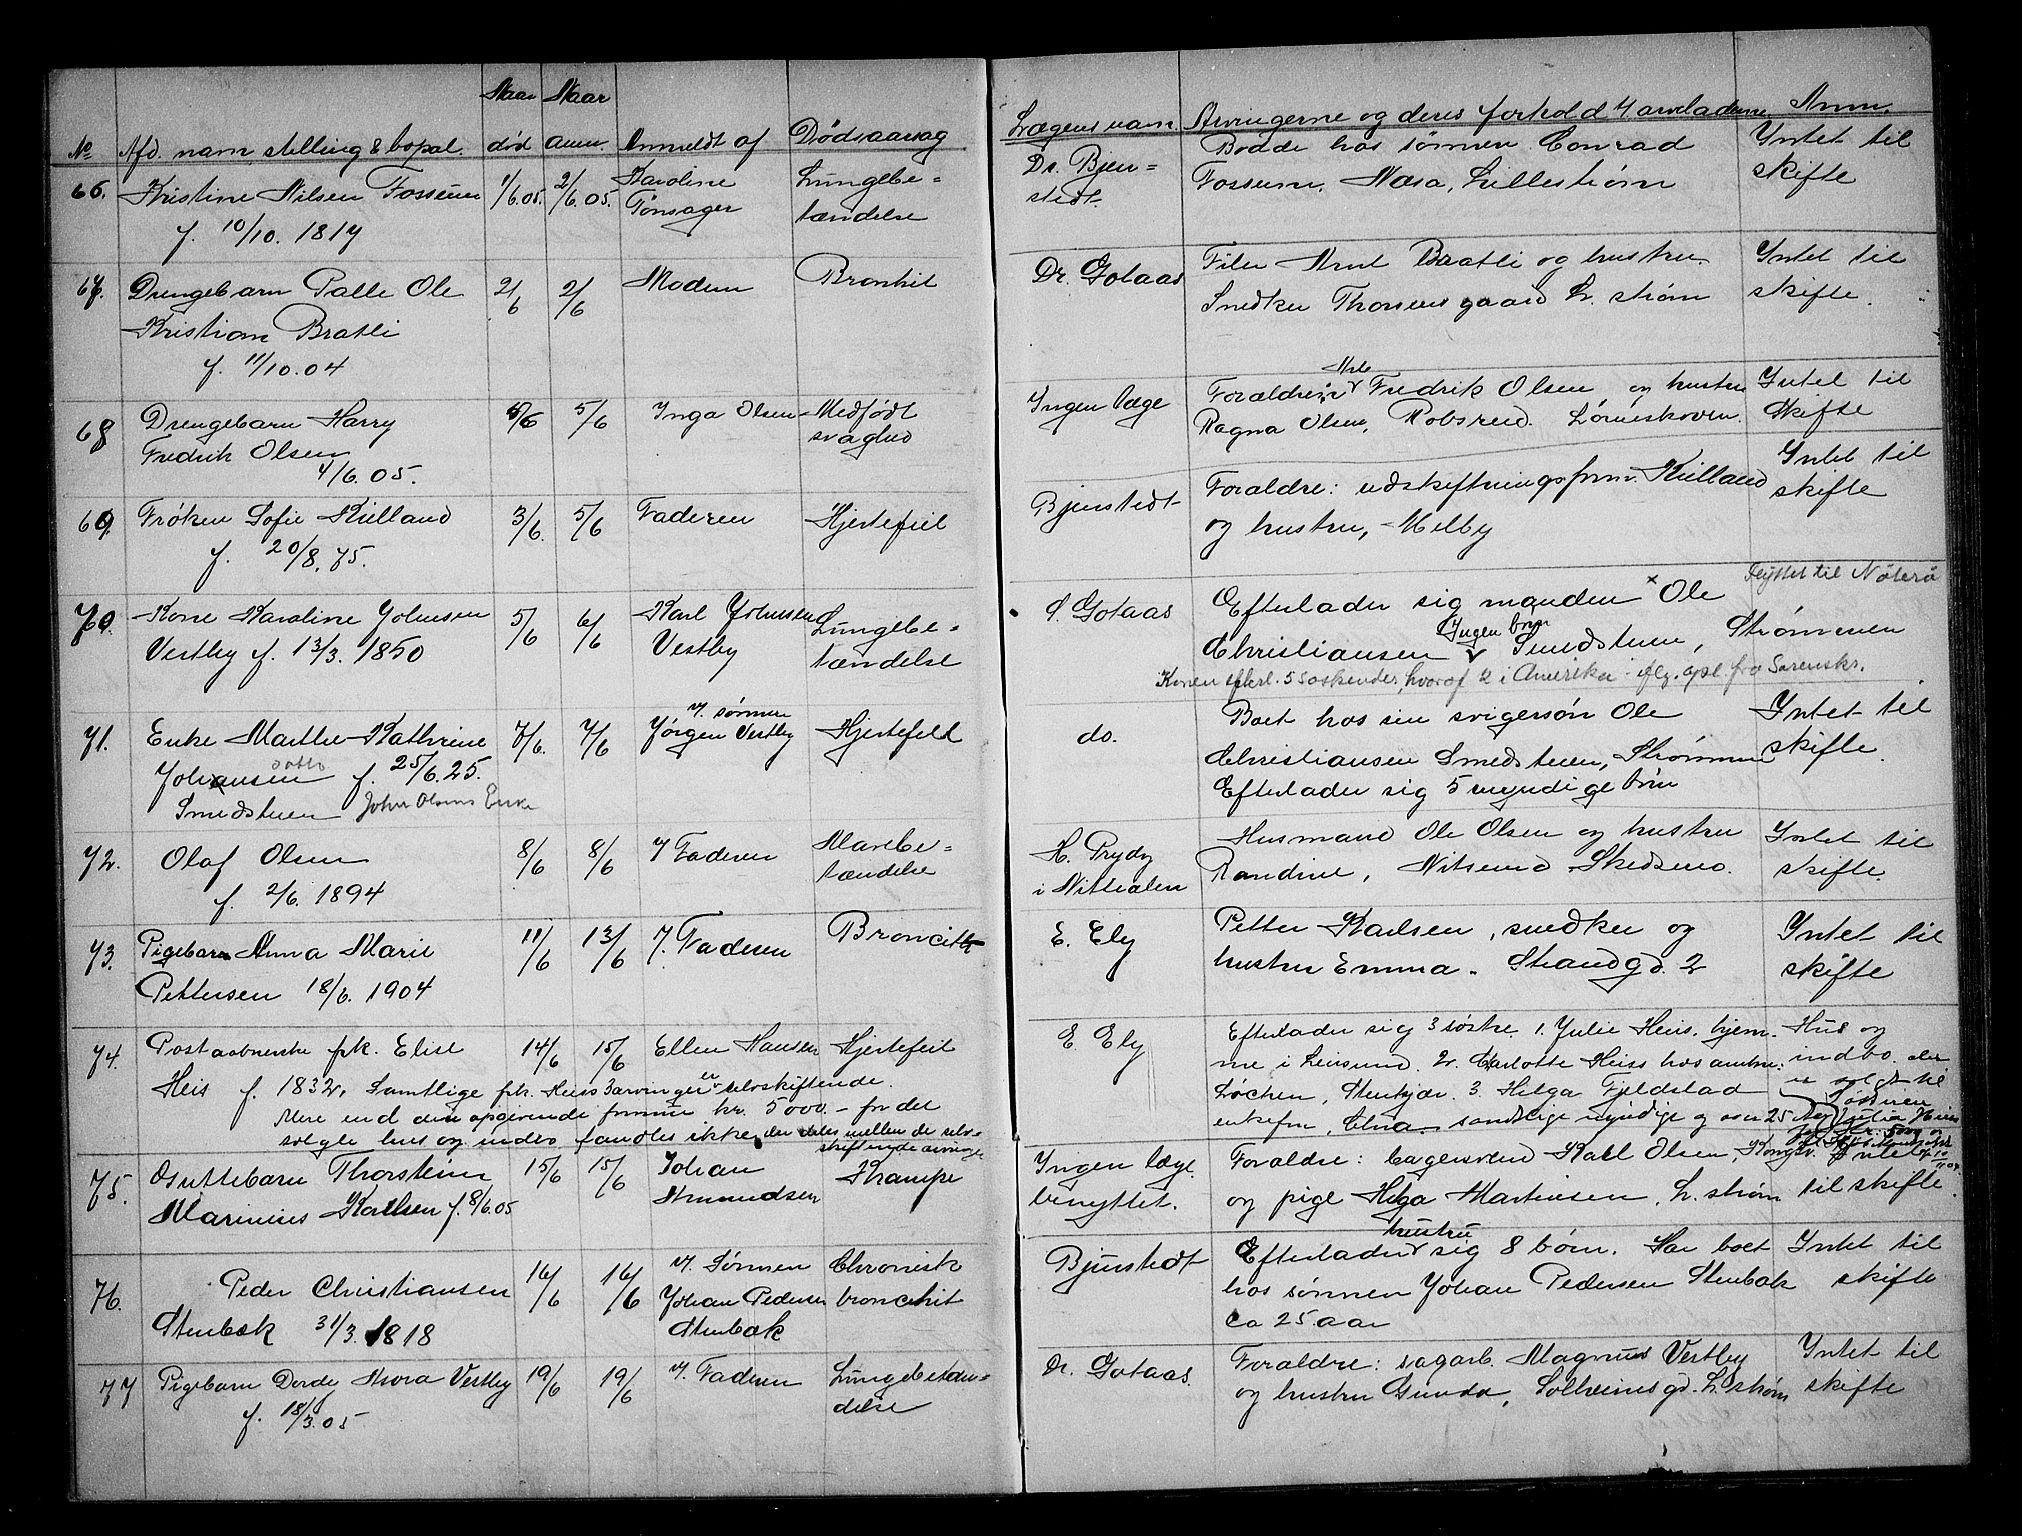 No Afd. nam stilling & bopæl. Naar død Naar anm. Anmeldt af Dødsaarsag Lægens navn Arvingerne og deres forhold t/ arveladeren Anm.
66. Kristine Nilsen Fossum 1/6.05. 2/6.05. Karoline Lungebe= Dr. Bjen= Bodde hos sønnen Conrad Intet til
f. 10/10. 1817 Tønsager tændelse stedt. Fossum. Næsa, Lillestrøm skifte
67. Drengebarn Palle Ole 2/6 2/6 Modern Bronkit Dr. Gotaas Filer Arnt Braatli og hustru Intet til
Kristian Bratli Snedker Thorsensgaard L. strøm skifte.
f. 11/10.04
68 Drengebarn Harry 5/6 5/6 Inga Olsen Medfødt Ingen læge Forældre: Arb. Fredrik Olsen og hustru Intet til
Fredrik Olsen svaghed Ragna Olsen, Robsrud. Lørenskoven. Skifte
4/6.05.
69. Frøken Sofie Kielland 3/6. 5/6 Faderen Hjertefeil Bjerstedt Forældre: udskiftningsform. Kielland Intet til
f. 20/8.75. og hustru, Melby skifte
70. Kone Karoline Johnsen 5/6 6/6 Karl Johnsen Lungebe= d. Gotaas Efterlader sig manden × Ole Flyttet til Nøterø
Vestby f. 13/3. 1850 Vestby tændelse Christiansen Ingen børn Smedstuen, Strømmen
Konen efterl. 5 søskender, hvoraf 2 i Amerika ifølg. opl. fra Sørenskr.
71. Enke Marthe Kathrine 7/6. 7/6 v. sønnen Jørgen Vestby Hjertefeil do. Boet hos sin svigersøn Ole Intet til
Johansen datter f. 25/6.25. Christiansen Smedstuen, Strømmen skifte.
Smedstuen John Olsens Enke Efterlader sig 5 myndige børn
72. Olaf Olsen 8/6 8/6 v Faderen Mavebe= H. Prydz Husmand Ole Olsen og hustru Intet til
f. 2/6. 1894 tændelse i Nittedalen Randine, Nitsund Skedsmo. skifte.
73. Pigebarn Anna Marie 11/6 13/6 v. Faderen Broncitt E. Ely Petter Karlsen, snedker og Intet til
Pettersen 18/6. 1904 hustru Emma. Strandgd. 2 skifte
74. Postaabnerske frk. Elise 14/6 15/6 Ellen Hansen Hjertefeil E. Ely Efterlader sig 3 søstre. 1. Julie Heiss. hjem= Hus og
Heis f. 1832. Samtlige frk. Heiss 3 arvinger er selvskiftende. me i Leirsund. 2. Charlotte Heiss hos amtm: indbo. der
Mere end den opgivende sum kr. 5000.- for det Løchen, Stenkjær. 3. Helga Fjeldstad er solgt til
solgte hus og indbo fandtes ikke, der deles mellem de selv= enkefru, Elna. samtlige myndige og over 25 Aar Søsteren Julie Heiss
skiftende arvinger for Kr. 5000
75. Guttebarn Thorstein 15/6 15/6 Johan Krampe Ingen læge Forældre: bagersvend Karl Olsen, Kongsv. Intet
Marinius Karlsen f. 8/6.05 Amundsen benyttet. og pige Helga Martinsen, L. strøm til skifte.
76. Peder Christiansen 16/6 16/6 v. Sønnen Chronisk Bjerstedt Efterlader hustru sig 8 børn. Har boet Intet til
Stenbæk 31/3. 1818 Johan Pedersen bronchit hos sønnen Johan Pedersen Stenbæk skifte
Stenbæk Ca 25 aar
77 Pigebarn Dorde Nora Vestby 19/6 19/6 v. Faderen Lungebetæn= Dr. Gotaas. Forældre: sagarb. Magnus Vestby Intet til
f. 18/3.05 delse og hustru Gunda, Solheimsgd. L. strøm skifte